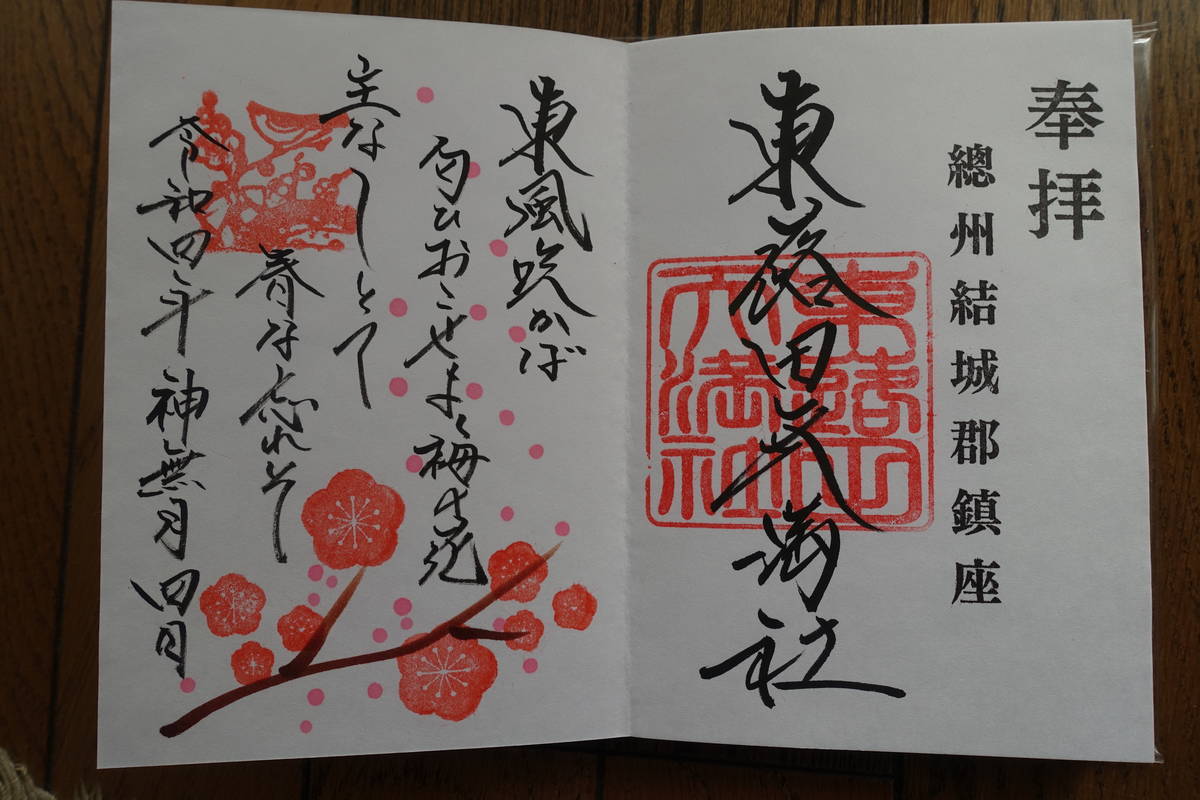 奉拝
總州結城郡鎮座
東蕗田天満社
東蕗田
天満社
東風吹かば
匂ひおこせよ 梅の花
主なしとて
春な忘れそ
令和四年 神無月 四日